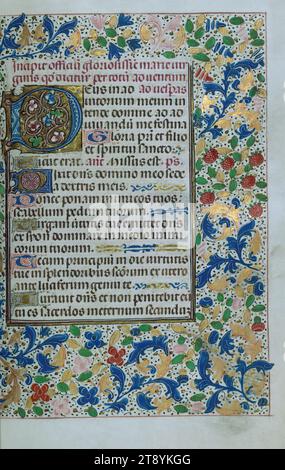 Incipit officiu gloriosissime marie uir
ginis qd dicitur per totu aduentum
Deus in ad ad uespas
iutorium meum in
tende domine ad ad
iuuandu me festina
Gloria patri et filio
et spiritui sancto
Sicut erat. ane Missus est. ps
Dixit dns domino meo sede
a dextris meis.
Donec ponam inimicos tuos
scabellum pedum tuorum.
Uirgam uirtutis tue emittet dns
ex syon dominare in medio inimi
corum tuorum.
Tecum principiu in die uirtutis
tue in splendoribus scorum ex utero
ante luciferum genui te.
Iurauit dns et non penitebit eu
tu es sacerdos in eternum secundu
alamy
Image ID: 2T8YKGG
www.alamy.com